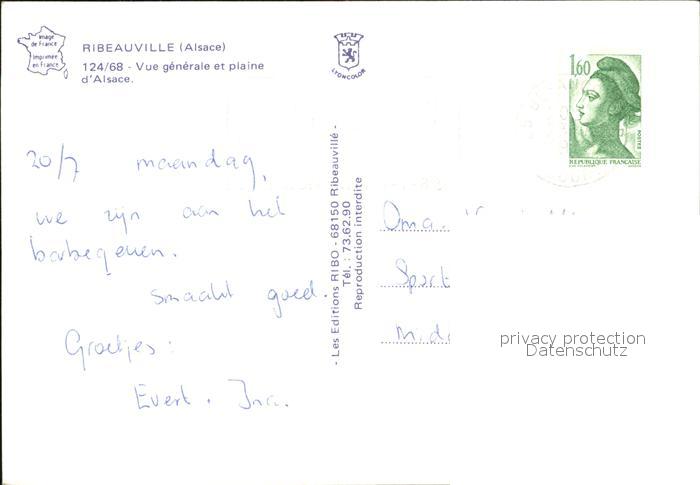 Image
de France
Imprimée
en France
RIBEAUVILLE (Alsace)
124/68 - Vue générale et plaine
d'Alsace.
LYONCOLOR
1,60
POSTES
REPUBLIQUE FRANÇAISE
20/7 maandag,
we zijn aan het
barbequeuen.
Smaakt goed.
Groetjes:
Evert. Ina.
- Les Editions RIBO - 68150 Ribeauvillé -
Tél. : 73.62.90
Reproduction interdite
Oma.
Sport
privacy protection
Datenschutz